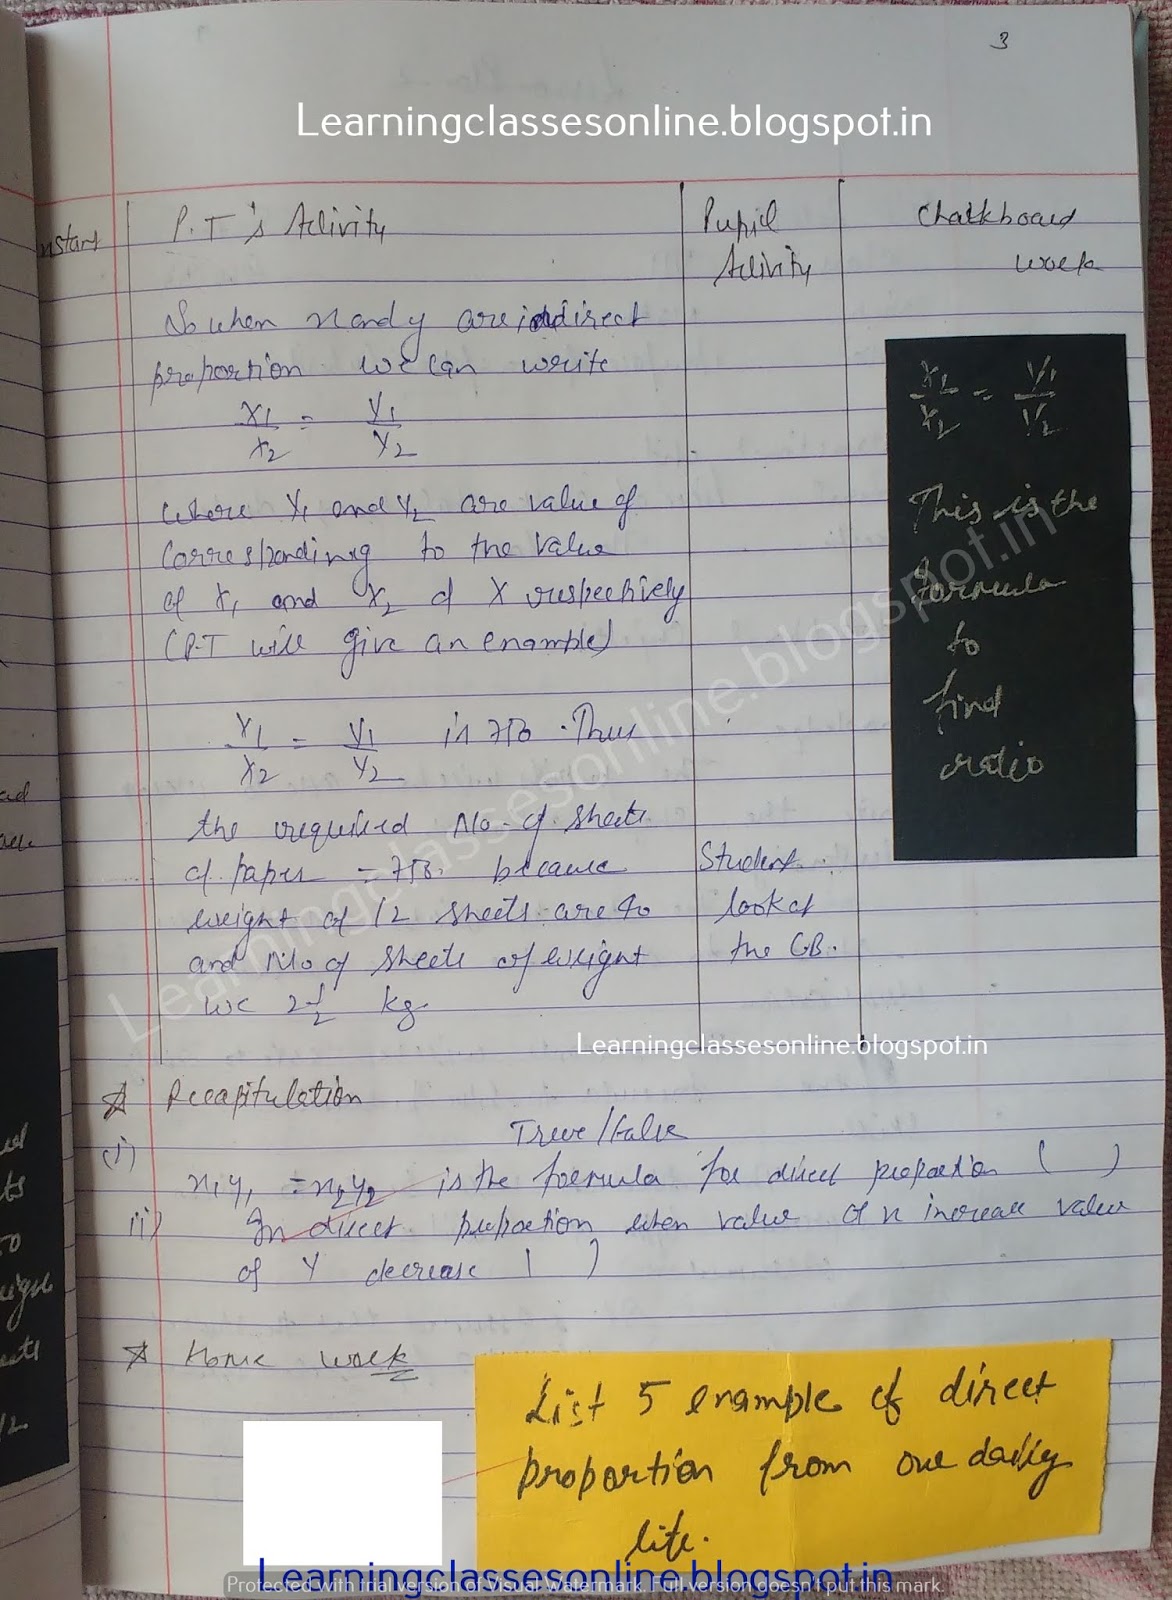 3
Learningclassesonline.blogspot.in
P.T's Activity
Pupil
Activity
Chalkboard
work
So when x and y are in direct
proportion we can write
x1/x2 = y1/y2
where y1 and y2 are value of
corresponding to the value
of x1 and x2 of X respectively
(P.T will give an example)
x1/x2 = y1/y2 is 750. Thus
the required No. of sheets
of paper = 750. because
weight of 12 sheets are 40
and No of sheets of weight
we 2 1/2 kg.
Student
look at
the CB.
x1/x2 = y1/y2
This is the
formula
to
find
ratio
Learningclassesonline.blogspot.in
Learningclassesonline.blogspot.in
Recapitulation
True/False
(i)
x1y1 = x2y2 is the formula for direct proportion ( )
ii) In direct proportion when value of x increase value
of Y decrease ( )
Home work
List 5 example of direct
proportion from our daily
life.
Learningclassesonline.blogspot.in
Protected with trial version of Visual Watermark. Full version doesn't put this mark.